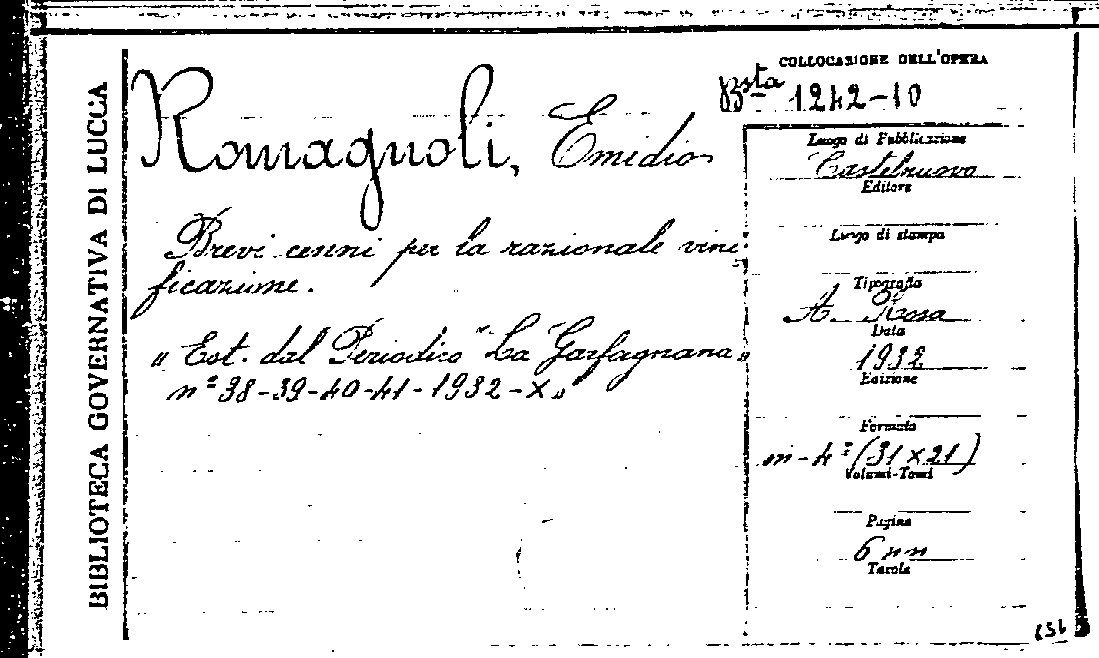 BIBLIOTECA GOVERNATIVA DI LUCCA
Romagnoli, Emidio
Brevi cenni per la razionale vini-
ficazione.
"Est. dal Periodico "La Garfagnana"
n° 38-39-40-41-1932-X"
COLLOCAZIONE DELL'OPERA
Bsta 1242-10
Luogo di Pubblicazione
Castelnuovo
Editore
Luogo di stampa
Tipografia
A. Rosa
Data
1932
Edizione
Formato
in-4° (31x21)
Volumi-Tomi
Pagine
6 nn
Tavole